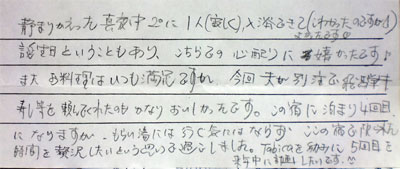 静まりかえった真夜中に1人(寂しく)入浴できて(こわかったのですが)
よかったです
誕生日ということもあり、こちらの心配りに嬉かったです
また お料理はいつも満足ですが、今回 夫が別注で
等を頼んでくれたのもかなりおいしかったです。この宿に泊まり4回目
になりますが、もう 湯には行く気にはならず この宿る
時間を贅沢したいという思いで過ごしました。Tabicaを励みに 5回目を
来年中に計画したいです。